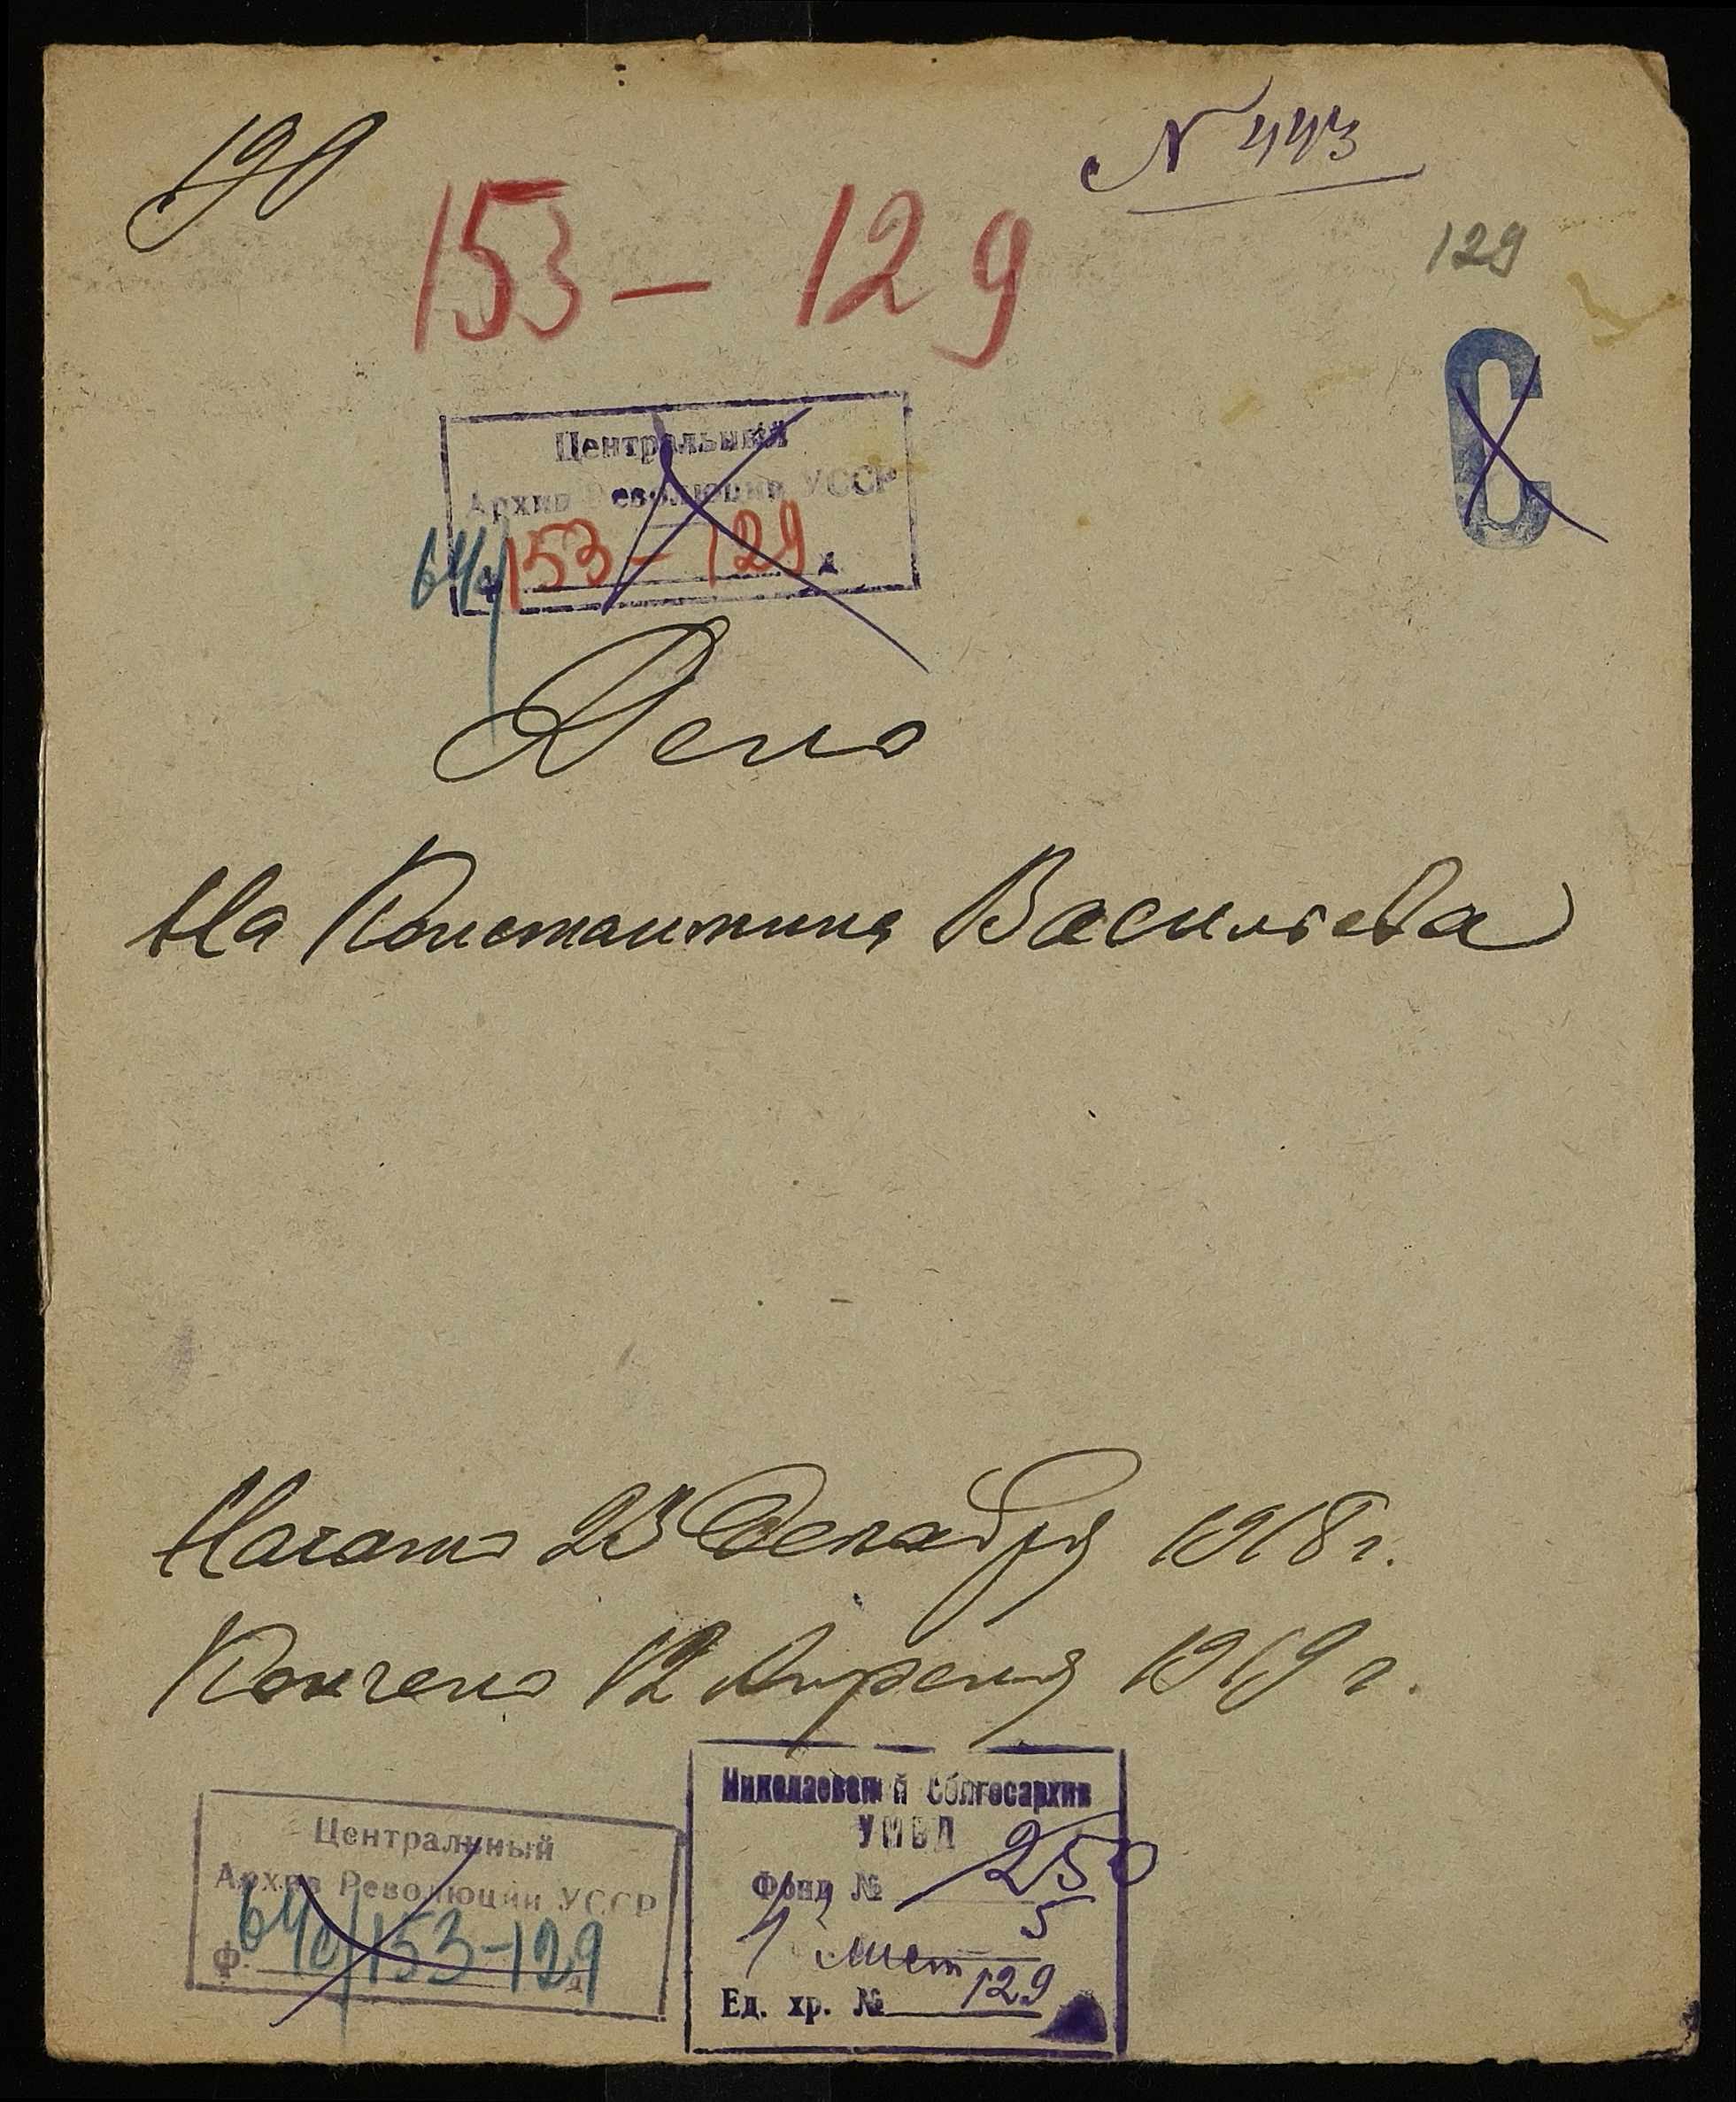 190
N 443
153 — 129
129
С
Центральный
Архив Революции УССР
153 — 129
Дело
На Константина Васильева
Начато 23 Декабря 1918 г.
Кончено 12 Апреля 1919 г.
Николаевский Облгосархив
УМВД
Фонд № 250
5
лист
Ед. хр. № 129
Центральный
Архив Революции УССР
Ф. 64с/153-129